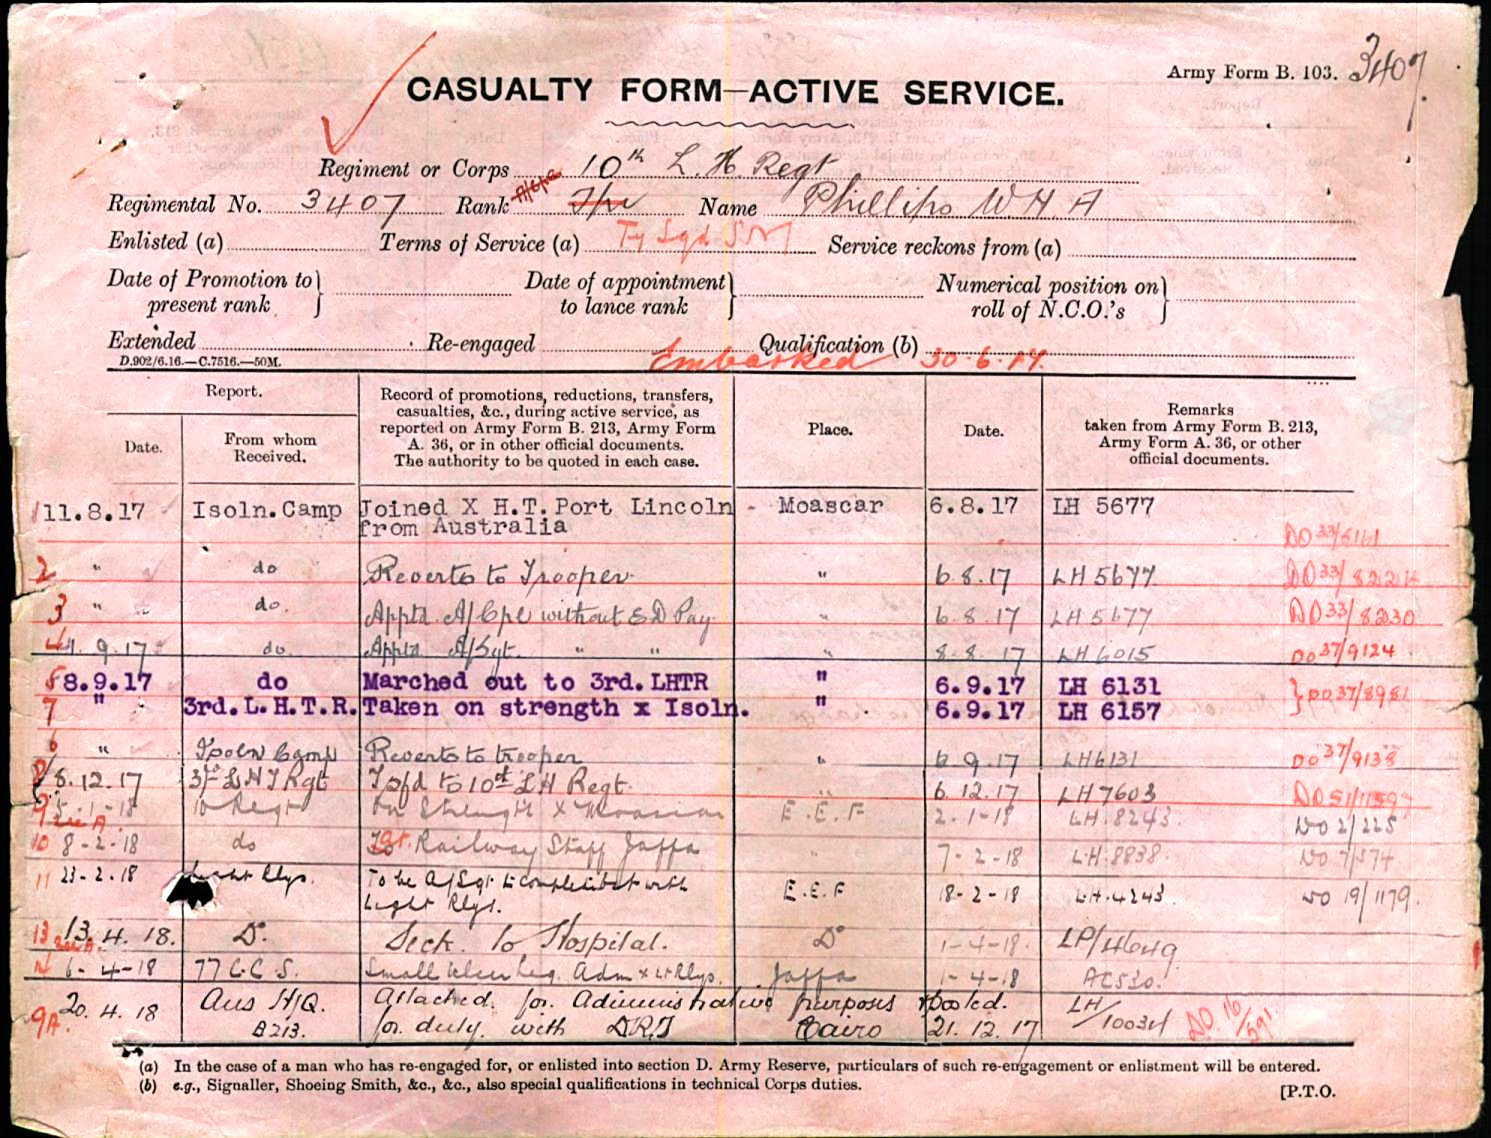 3407
Army Form B. 103.
CASUALTY FORM—ACTIVE SERVICE.
Regiment or Corps 10th L. H. Regt
Regimental No. 3407 Rank A/Cpl Tpr Name Phillips W H A
Enlisted (a) Terms of Service (a) Ty Sqd SM Service reckons from (a)
Date of Promotion to present rank } Date of appointment to lance rank } Numerical position on roll of N.C.O.'s }
Extended Re-engaged Qualification (b)
D.902/6.16.—C.7516.—50M.
Embarked 30.6.17.
Report.
Date.
From whom Received.
Record of promotions, reductions, transfers,
casualties, &c., during active service, as
reported on Army Form B. 213, Army Form
A. 36, or in other official documents.
The authority to be quoted in each case.
Place.
Date.
Remarks
taken from Army Form B. 213,
Army Form A. 36, or other
official documents.
1 11.8.17 Isoln.Camp Joined X H.T.Port Lincoln - Moascar 6.8.17 LH 5677
from Australia
2 " do Reverts to Trooper " 6.8.17 LH 5677
3 " do. Apptd. A/Cpl without E D Pay " 6.8.17 LH 5677 DO 33/8230
4 4.9.17 do. Apptd. A/Sgt. " " " 8.8.17 LH 6015 DO 37/9124
5 8.9.17 do Marched out to 3rd.LHTR " 6.9.17 LH 6131
7 " 3rd.L.H.T.R. Taken on strength x Isoln. " 6.9.17 LH 6157 } DO 37/8981
6 " Isoln Camp Reverts to trooper " 6.9.17 LH 6131 DO 37/9138
8 8.12.17 3rd L H T Rgt Tsfd to 10th L H Regt. " 6.12.17 LH 7603
9 5-1-18 10 Regt On Strength X Moascar E.E.F 2-1-18 LH.8243. DO 2/225
10 8-2-18 do Railway Staff Jaffa " 7-2-18 LH.8838. DO 7/574
11 23-2-18 Light Rlys. To be A/Sgt with
Light Rlys. E.E.F 18-2-18 LH.4243 DO 19/1179.
13 13.4.18. Do. Sick to Hospital. Do 1-4-18. LP/4649
14 6-4-18 77 C.C S. Small Ulcer Leg. Adm x Lt Rlys. Jaffa 1-4-18
9A. 20.4.18 Aus H/Q. Attached for Administrative purposes
B213. for duty with DRT Cairo 21.12.17 LH/10034
(a) In the case of a man who has re-engaged for, or enlisted into section D. Army Reserve, particulars of such re-engagement or enlistment will be entered.
(b) e.g., Signaller, Shoeing Smith, &c., &c., also special qualifications in technical Corps duties.
[P.T.O.